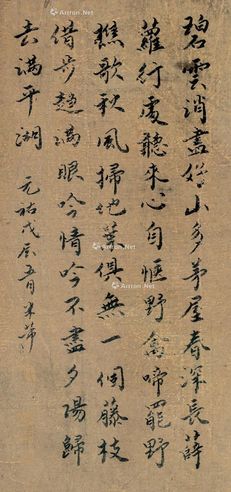 碧雲消盡始山多茅屋春深長薜
蘿行處聽來心自愜野禽啼罷野
樵歌秋風掃地葉俱無一個藤枝
借步趨滿眼吟情吟不盡夕陽歸
去滿平湖 元祐戊辰五月米芾